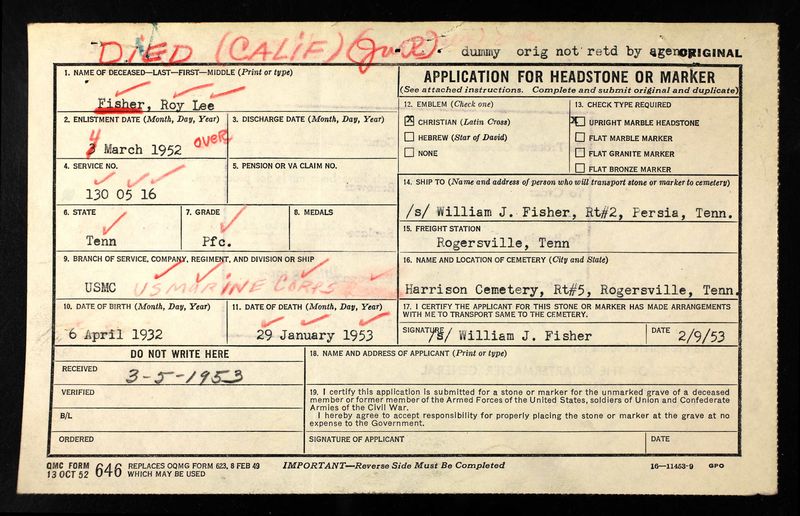 DIED (CALIF) dummy orig not retd by agency ORIGINAL
1. NAME OF DECEASED—LAST—FIRST—MIDDLE (Print or type)
Fisher, Roy Lee
2. ENLISTMENT DATE (Month, Day, Year)
3. DISCHARGE DATE (Month, Day, Year)
4
3 March 1952
OVER
4. SERVICE NO.
5. PENSION OR VA CLAIM NO.
130 05 16
6. STATE
7. GRADE
8. MEDALS
Tenn
Pfc.
9. BRANCH OF SERVICE, COMPANY, REGIMENT, AND DIVISION OR SHIP
USMC US MARINE CORPS
10. DATE OF BIRTH (Month, Day, Year)
11. DATE OF DEATH (Month, Day, Year)
6 April 1932
29 January 1953
APPLICATION FOR HEADSTONE OR MARKER
(See attached instructions. Complete and submit original and duplicate)
12. EMBLEM (Check one)
X CHRISTIAN (Latin Cross)
HEBREW (Star of David)
NONE
13. CHECK TYPE REQUIRED
X UPRIGHT MARBLE HEADSTONE
FLAT MARBLE MARKER
FLAT GRANITE MARKER
FLAT BRONZE MARKER
14. SHIP TO (Name and address of person who will transport stone or marker to cemetery)
/s/ William J. Fisher, Rt#2, Persia, Tenn.
15. FREIGHT STATION
Rogersville, Tenn
16. NAME AND LOCATION OF CEMETERY (City and State)
Harrison Cemetery, Rt#5, Rogersville, Tenn.
17. I CERTIFY THE APPLICANT FOR THIS STONE OR MARKER HAS MADE ARRANGEMENTS
WITH ME TO TRANSPORT SAME TO THE CEMETERY.
SIGNATURE /s/ William J. Fisher
DATE 2/9/53
DO NOT WRITE HERE
RECEIVED 3-5-1953
VERIFIED
B/L
ORDERED
18. NAME AND ADDRESS OF APPLICANT (Print or type)
19. I certify this application is submitted for a stone or marker for the unmarked grave of a deceased
member or former member of the Armed Forces of the United States, soldiers of Union and Confederate
Armies of the Civil War.
I hereby agree to accept responsibility for properly placing the stone or marker at the grave at no
expense to the Government.
SIGNATURE OF APPLICANT
DATE
QMC FORM
13 OCT 52
646
REPLACES OQMG FORM 623, 8 FEB 49
WHICH MAY BE USED
IMPORTANT—Reverse Side Must Be Completed
16—11453-9 GPO